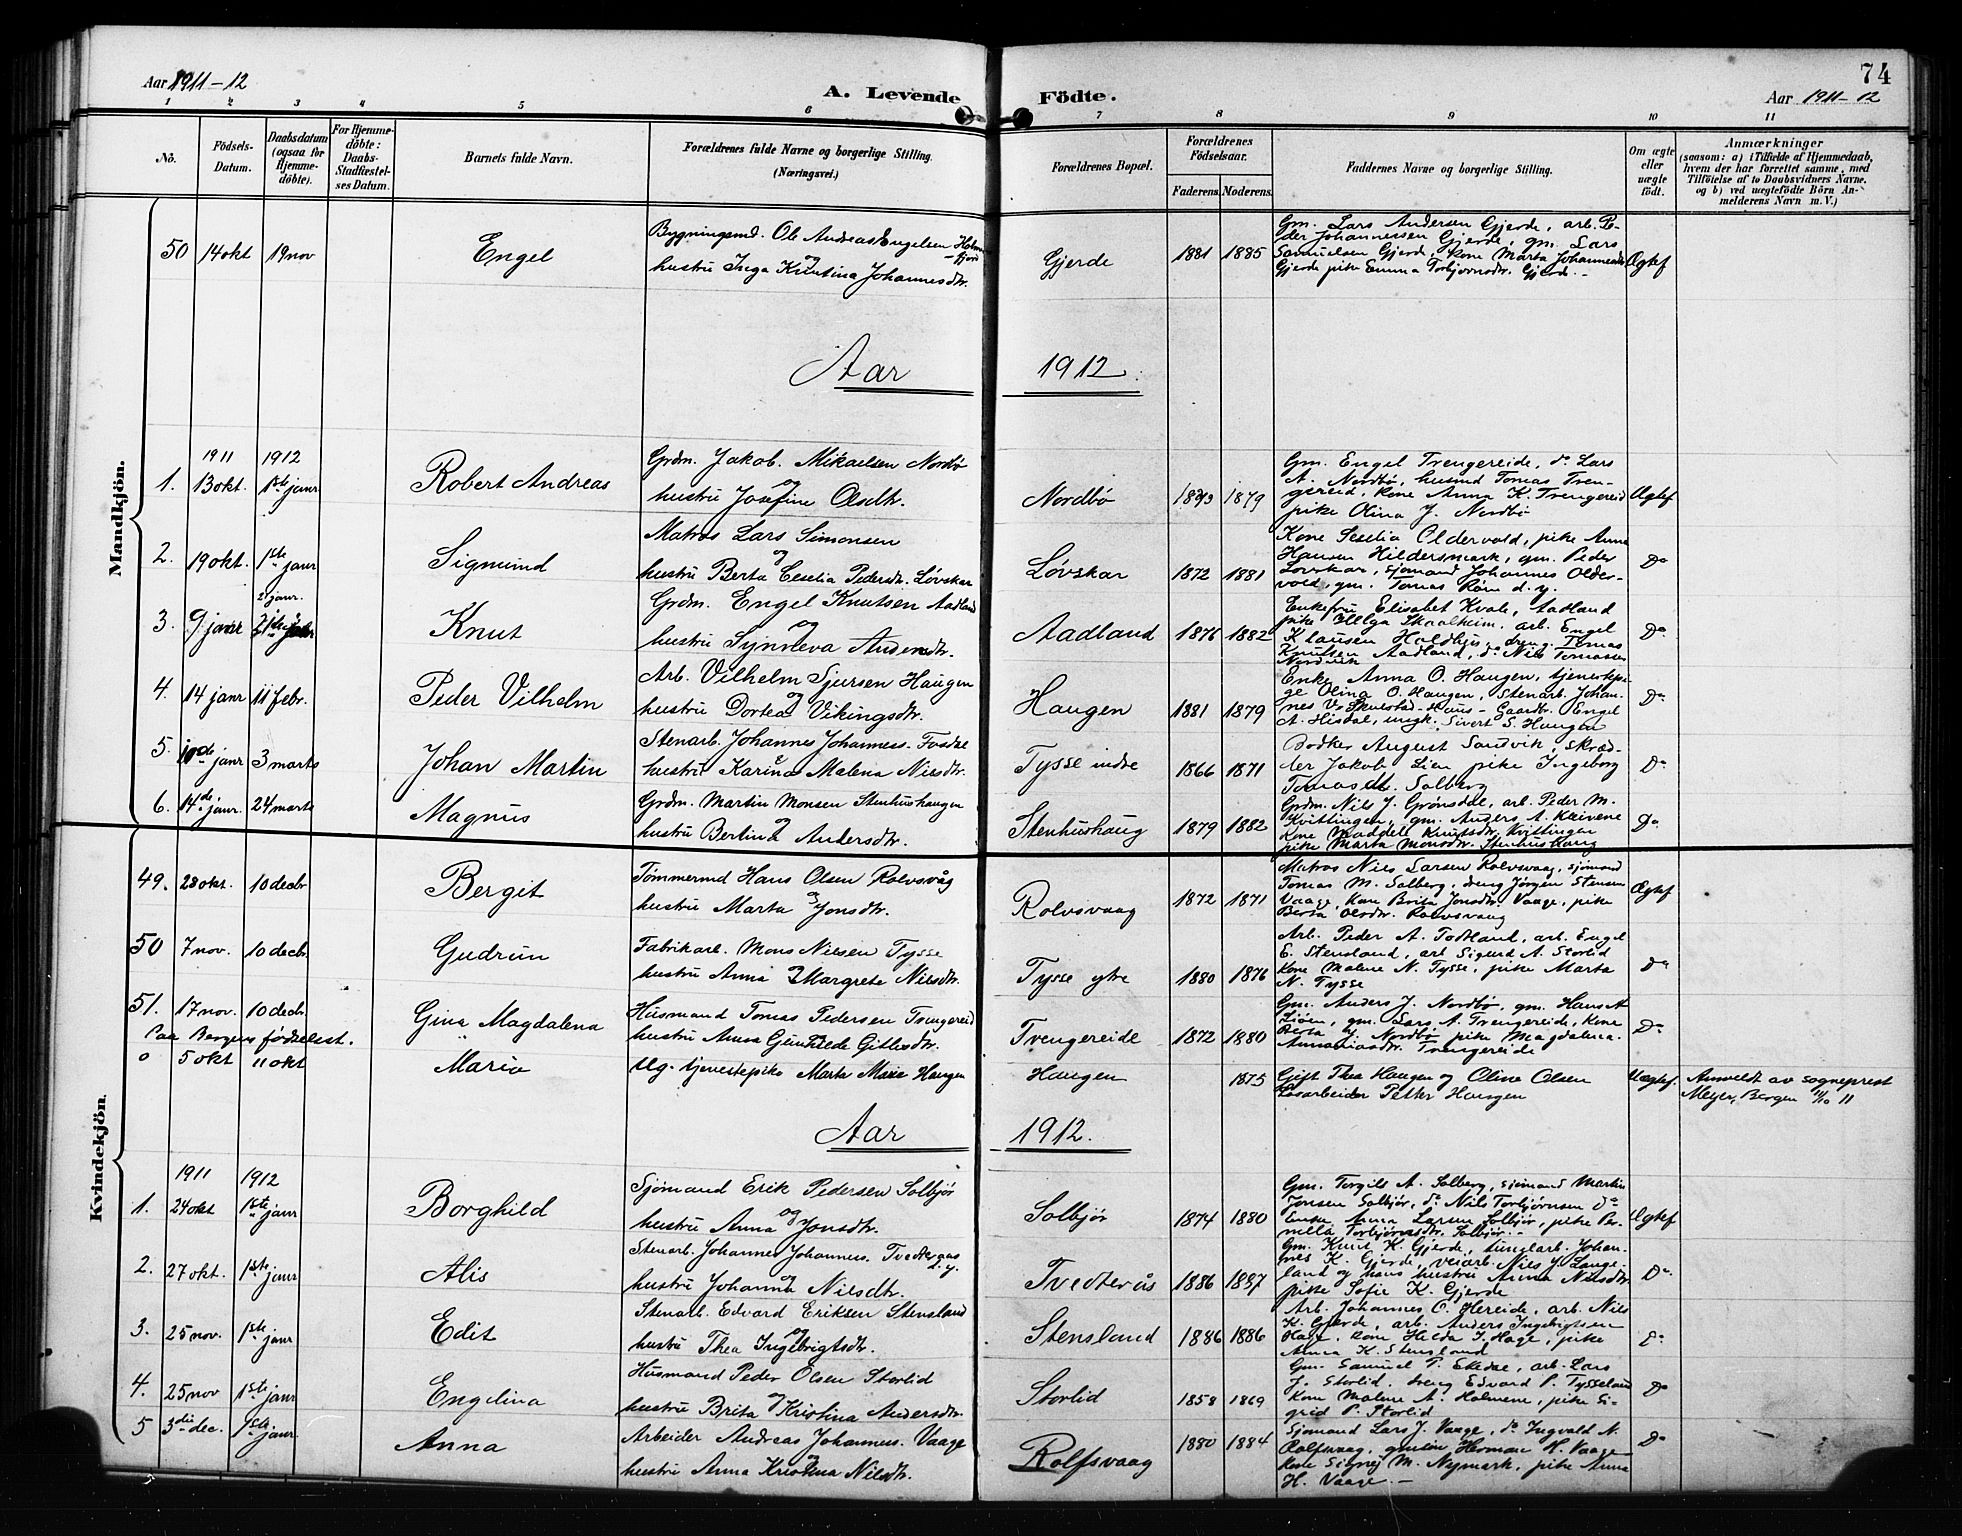 Aar 1911-12
A. Levende Födte.
74
Aar 1911-12
1 2 3 4 5 6 7 8 9 10 11
No.
Födsels-Datum.
Daabsdatum (ogsaa for Hjemme-döbte).
For Hjemme-döbte: Daabs-Stadfæstel-ses Datum.
Barnets fulde Navn.
Forældrenes fulde Navne og borgerlige Stilling. (Næringsvei.)
Forældrenes Bopæl.
Forældrenes Födselsaar.
Faderens. Moderens.
Faddernes Navne og borgerlige Stilling.
Om ægte eller uægte födt.
Anmærkninger
(saasom: a) i Tilfælde af Hjemmedaab, hvem der har forrettet samme, med Tilföielse af to Daabsvidners Navne. og b) ved uægtefödte Börn An-melderens Navn m. V.)
Mandkjön.
50 14 okt 19 nov Engel
Bygningsmd. Ole Andreas Engelsen
og
hustru Inga Knutina Johannesdtr.
Gjerde 1881 1885
Gm. Lars Andersen Gjerde, arb. Pe-
der Johannessen Gjerde, gm. Lars
Samuelsen Gjerde, kone Marta Johannesdtr
Gjerde pike Emma Torbjørnsdtr. Gjerde.-
Ægtef
Aar 1912.
1911 1912
1. 13 okt. 1ste janr Robert Andreas
Grdm. Jakob Mikaelsen Nordbø
og
hustru Josefine Olsdtr.
Nordbø 1879
Gm. Engel Trengereide, do Lars
A. Nordbø, husmd Tomas Tren-
gereid, kone Anna K. Trengereid
pike Olina J. Nordbø
Ægtef
2. 19 okt. 1ste janr Sigmund
Matros Lars Simonsen
og
hustru Berta Cecelia Pedersdtr. Løvskar
Løvskar 1872 1881
Kone Seselia Oldervold, pike Anna
Hansen Hildersmark, gm. Peder
Løvskar, sjømand Johannes Older-
vold, gm. Tomas Røm d.y.
Do
3. 9 janr 2 janr. Knut
Grdm. Engel Knutsen Aadland
og
hustru Synneva Andersdtr.
Aadland 1876 1882
Enkefru Elisabet Kvale, Aadland
pike Helga Skaalheim, arb. Engel
Klausen Holdhus, dreng Tomas
Knutsen Aadland, do Nils Tomassen
Nordvik
Do
4. 14 janr 11 febr. Peder Vilhelm
Arb. Vilhelm Sjursen Haugen
og
hustru Dortea Vikingsdtr.
Haugen 1881 1879
Enke Anna O. Haugen, tjenestepi-
ge Olina O. Haugen, Stenarb. Johan-
nes V. Skulstad-Haus- Gaardbr. Engel
A. Hisdal, ungk. Sivert S. Haugen
Do
5. janr 3 marts Johan Martin
Stenarb. Johannes Johanness. Fosdal
og
hustru Karina Malena Nilsdtr.
Tysse indre 1866 1871
Bødker August Sandvik, skræd-
der Jakob Lien pike Ingeborg
Tomasdt. Solberg
Do
6. 14de janr. 24 marts Magnus
Grdm. Martin Monsen Stenhushaugen
og
hustru Bertina Andersdtr.
Stenhushaug 1879 1882
Grdm. Nils J. Grønsdal, arb. Peder M.
Kvitlingen, gm. Anders A. Skeivene
Kone Maddeli Knutsdtr. Kvitlingen
pike Marta Monsdtr. Stenhushaug
Do
Kvindekjön.
49. 28 okt. 10 decbr Bergit
Tømmermd Hans Olsen Rolvsvåg
og
hustru Marta Jonsdtr.
Rolvsvaag 1872 1871
Matros Nils Larsen Rolvsvaag, sjømand
Tomas M. Solberg, dreng Jørgen Stensen
Vaage, kone Brita Jonsdtr. Vaage, pike
Berta Olsdtr. Rolvsvaag
Ægtef
50 7 nov. 10 decbr. Gudrun
Fabrikarb. Mons Nilsen Tysse
og
hustru Anna Margrete Nilsdtr.
Tysse ytre 1880 1876
Arb. Peder A. Todland, arb. Engel
E. Stensland, arb Sigurd A. Storlid
Kone Malene N. Tysse, pike Marta
N. Tysse
Do
51. 17 nov. 10 decbr. Gina Magdalena
Husmand Tomas Pedersen Trengereid
hustru Anna Gunhilde Gitlesdtr.
Trengereide 1872 1880
Gm. Anders J. Nordbø, gm. Hans A
Liøen, gm. Lars A. Trengereide, kone
Berta J. Nordbø, pike Magdalena
Annaniasdtr. Trengereide
Do
Paa Bergens fødselsst.
0 5 okt 11 okt Maria
Ug. tjenestepike Marta Marie Haugen
Haugen 1875
Gift Thea Haugen og Oline Olsen
Løsarbeider Petter Haugen
Uægtef.
Anmeldt av sogneprest
Meyer, Bergen 11/10 11
Aar 1912.
1911 1912
1. 24 okt 1ste janr Borghild
Sjømand Erik Pedersen Solbjør
og
hustru Anna Jonsdtr.
Solbjør 1874 1880
Gm. Torgils A. Solberg, sjømand Martin
Jonsen Solbjør, do Nils Torbjørnsen Do
Enke Anna Larsen Solbjør, pike Per-
nella Torbjørnsdtr. Solbjør.-
Ægtef
2. 27 okt. 1ste janr Alis
Stenarb. Johannes Johanness. Tvedteraas
d.y.
og
hustru Johanna Nilsdtr.
Tvedterås 1886 1887
Gm. Knut K. Gjerde, tunglarb. Johan-
nes K. Gjerde, veiarb. Nils J. Lange-
land og hans hustru Anna Nilsdtr
pike Sofie K. Gjerde
Do
3. 25 nov. 1ste janr Edit
Stenarb. Edvard Eriksen Stensland
og
hustru Thea Ingebrigtsdtr.
Stensland 1886 1886
Arb. Johannes O. Hereide, arb. Nils
K. Gjerde, arb. Anders Ingebrigtsen
Hage, kone Hilda J. Hage, pike
Anna K. Stensland
Do
4. 25 nov 1ste janr Engelina
Husmand Peder Olsen Storlid
og
hustru Brita Kristina Andersdtr.
Storlid 1858 1869
Gm. Samuel P. Ekedal, arb. Lars
J. Storlid, dreng Edvard P. Tysseland
Kone Malene A. Holmene, pike Si-
grid P. Storlid
Do
5 3die dec. 1ste janr Anna
Arbeider Andreas Johanness. Vaage
og
hustru Anna Kristina Nilsdtr.
Rolfsvaag 1880 1884
Sjømand Lars J. Vaage, do Ingvald N.
Rolfsvaag, gmsøn Herman H. Vaage
Kone Signej M. Nymark, pike Anna
H. Vaage.-
Do